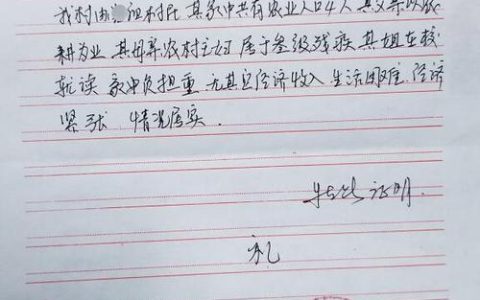 我村由 组村民 其家中共有农业人口4人 其父亲以农
耕为业 其母亲农村主妇 属于叁级残疾 其姐在校
就读 家中负担重 无其它经济收入 生活困难 经济
紧张 情况属实.
特此证明.